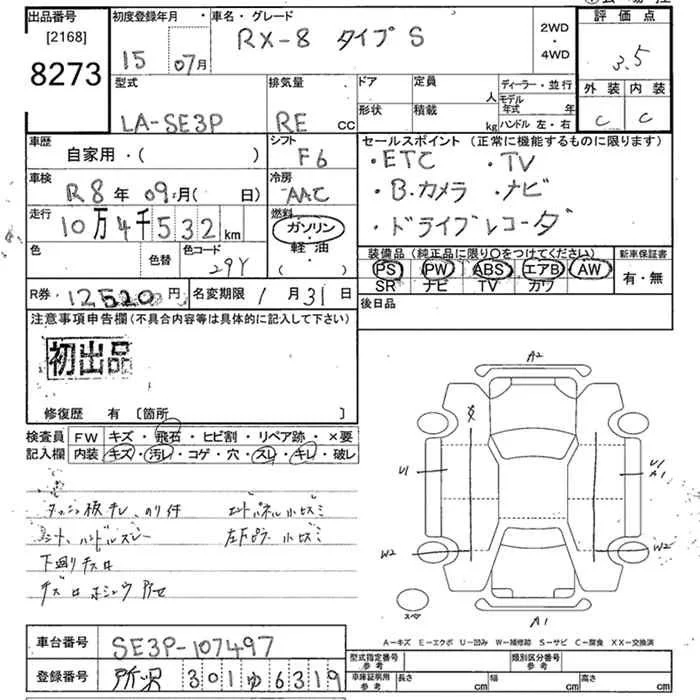 出品番号 [2168] 8273
初度登録年月 15 07月
車名・グレード RX-8 タイプS
2WD・4WD
評価点 3.5
外装 C 内装 C
型式 LA-SE3P
排気量 RE cc
ドア 形状
定員 人 積載 kg
ディーラー・並行
モデル年式 年
ハンドル 左・右
車歴 自家用・( )
シフト F6
セールスポイント (正常に機能するものに限ります)
・ETC ・TV
・B.カメラ ・ナビ
・ドライブレコーダ
車検 R8年 09月( 日)
冷房 AAC
走行 10万4千532km
燃料 ガソリン・軽油・( )
色 色替 色コード 29Y
装備品 (純正品に限り○をつけてください)
PS PW ABS エアB AW
SR ナビ TV カワ
新車保証書 有・無
R券 12520円 名変期限 1月31日
後日品
注意事項申告欄 (不具合内容等は具体的に記入して下さい)
初出品
修復歴 有 [箇所 ]
検査員記入欄
FW キズ・飛石・ヒビ割・リペア跡・×要
内装 キズ・汚レ・コゲ・穴・スレ・キレ・破レ
下廻り
A2
U1
U1
A1
W2
W2
スペア
A1
A-キズ E-エクボ U-凹み W-補修跡 S-サビ C-腐食 XX-交換済
車台番号 SE3P-107497
登録番号 所沢 301 ゆ 6319
型式指定番号 参考
類別区分番号 参考
車庫証明用 参考 長さ cm 幅 cm 高さ cm